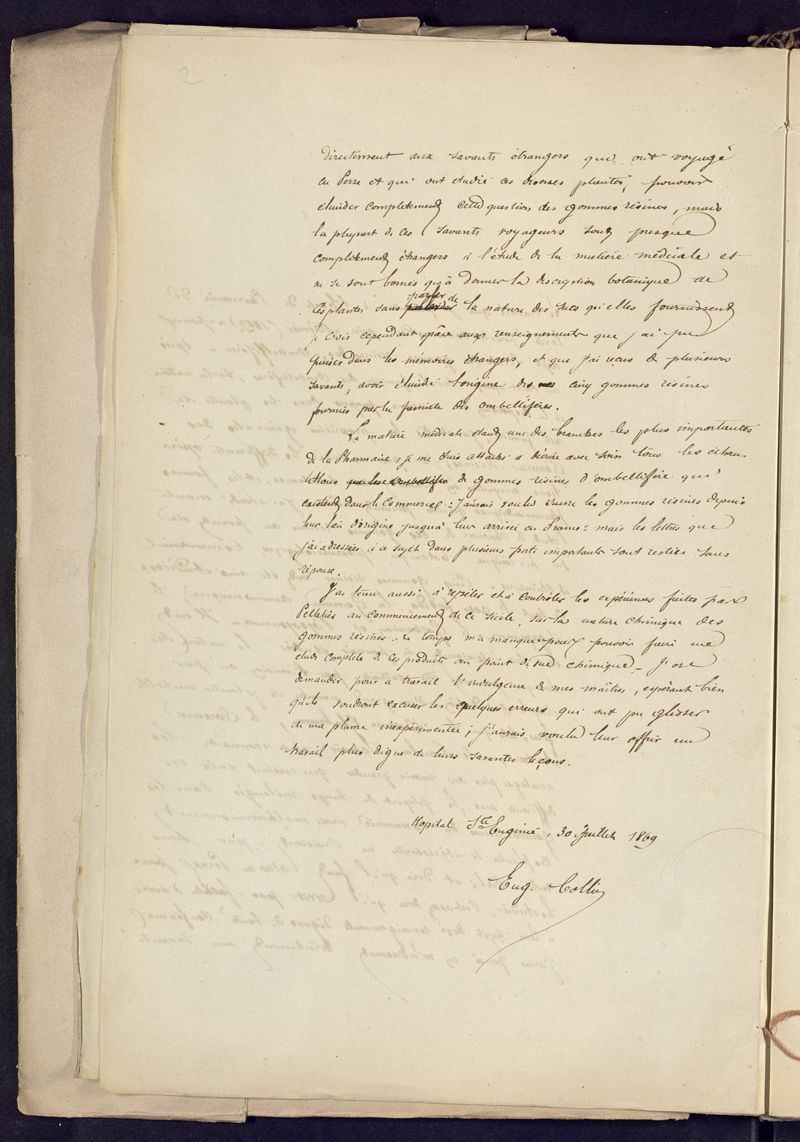 2
directement aux savants étrangers qui ont voyagé
en Perse et qui ont étudié ces diverses plantes, pouvoir
élucider complètement cette question des gommes résines, mais
la plupart de ces savants voyageurs sont presque
complètement étrangers à l'étude de la matière médicale et
ne se sont bornés qu'à donner la description botanique de
ces plantes sans parler de la nature des sucs qu'elles fournissent
Je crois cependant grâce aux renseignements que j'ai pu
puiser dans les mémoires étrangers, et que j'ai reçus de plusieurs
savants, avoir élucidé l'origine des cinq gommes résines
fournies par la famille des ombellifères.
La matière médicale étant une des branches les plus importantes
de la Pharmacie, je me suis attaché à décrire avec soin tous les échan-
tillons de gommes résines d'ombellifère qui
existent dans le Commerce : J'aurais voulu suivre les gommes résines depuis
leur lieu d'origine jusqu'à leur arrivée en France : mais les lettres que
j'ai adressées à ce sujet dans plusieurs ports importants sont restées sans
réponse.
J'ai tenu aussi à répéter et à contrôler les expériences faites par
Pelletier au commencement de ce siècle, sur la nature chimique des
gommes résines. Le temps m'a manqué pour pouvoir faire une
étude complète de ces produits au point de vue chimique. J'ose
demander pour ce travail l'indulgence de mes maîtres, espérant bien
qu'ils voudront excuser les quelques erreurs qui ont pu glisser
de ma plume inexpérimentée ; j'aurais voulu leur offrir un
travail plus digne de leurs savantes leçons.
Hopital Ste Eugénie, 30 Juillet 1869
Eug. Collin